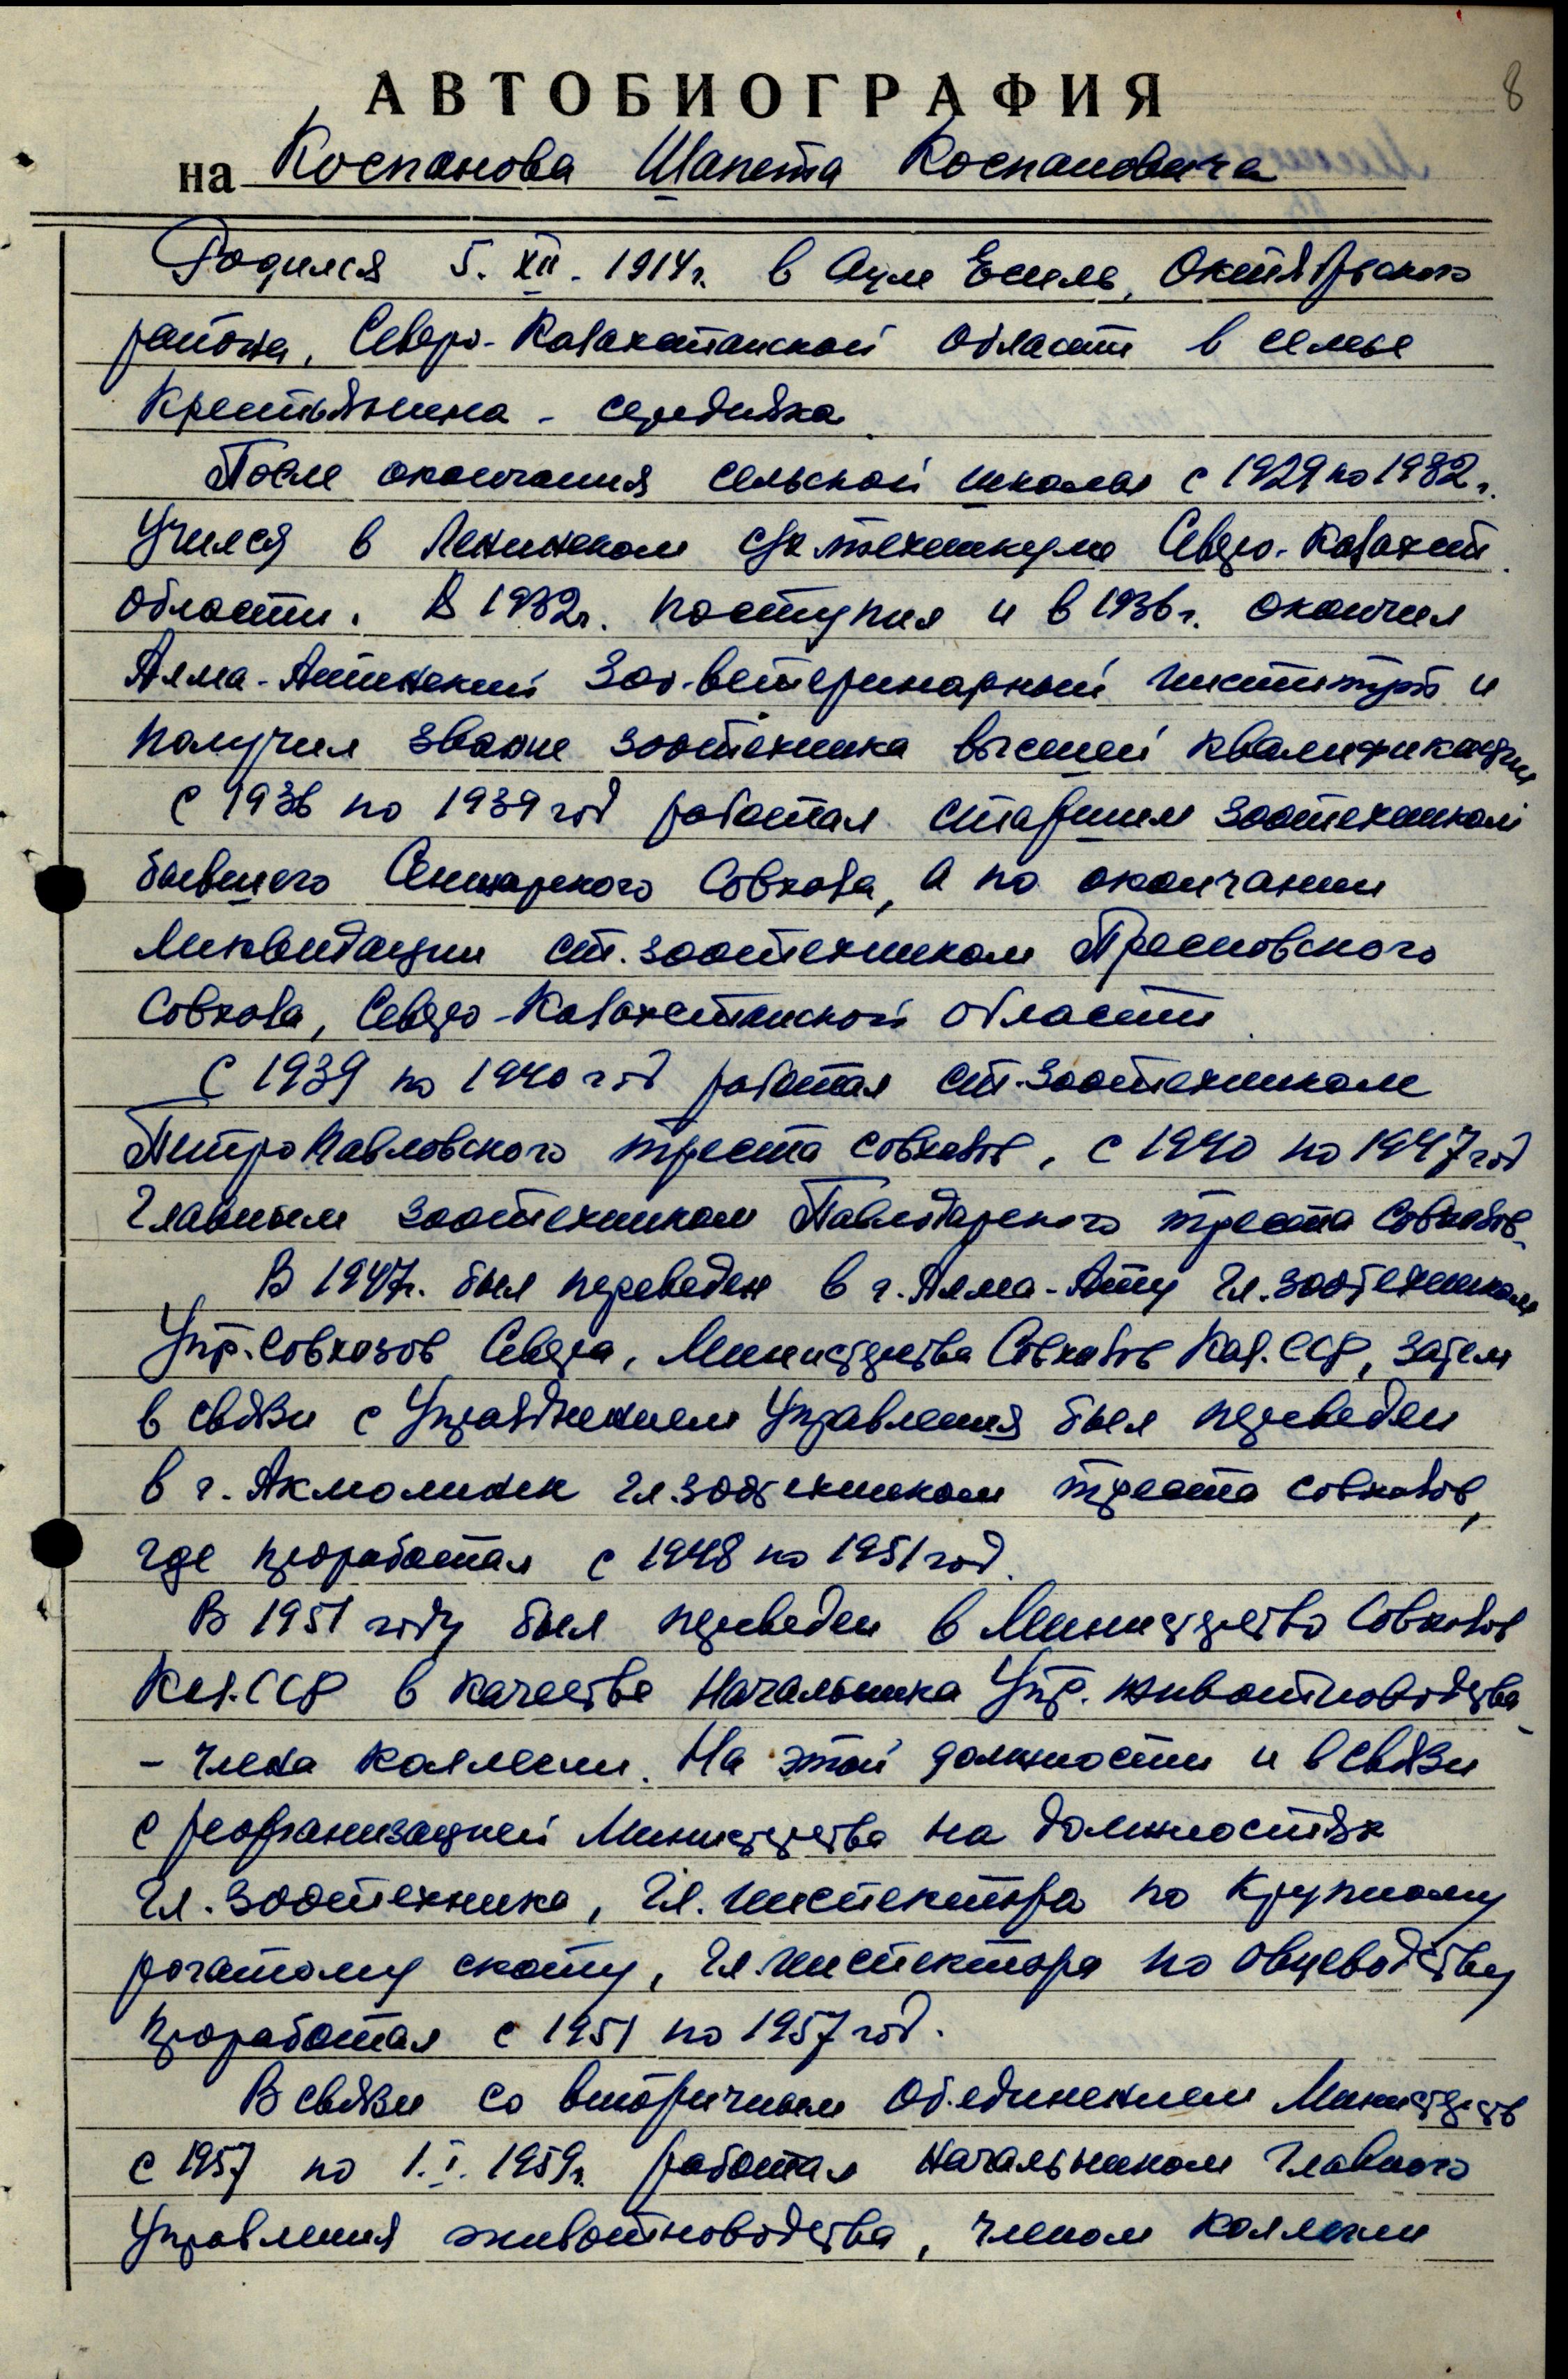 8
АВТОБИОГРАФИЯ
на Коспанова Шапета Коспановича
Родился 5. XII. 1914г. в Ауле Есиль, Октябрьского
района, Северо-Казахстанской области в семье
Крестьянина - середняка.
После окончания сельской школы с 1929 по 1932г.
Учился в Ленинском с/х техникуме Северо-Казахст.
области. В 1932г. поступил и в 1936г. окончил
Алма-Атинский Зоо-ветеринарный институт и
получил звание зоотехника высшей квалификации
С 1936 по 1939 год работал старшим зоотехником
бывшего Совхоза, а по окончании
ликвидации ст. зоотехником Пресновского
Совхоза, Северо-Казахстанской области.
С 1939 по 1940 год работал ст. зоотехником
Петропавловского треста совхозов, с 1940 по 1947 год
Главным зоотехником Павлодарского треста Совхозов.
В 1947г. был переведен в г. Алма-Ату Гл. зоотехником
Упр. Совхозов Севера, Министерства Совхозов Каз. ССР, затем
в связи с Упразднением Управления был переведен
в г. Акмолинск гл. зоотехником треста совхозов,
где проработал с 1948 по 1951 год.
В 1951 году был переведен в Министерство Совхозов
Каз. ССР в качестве Начальника Упр. животноводства
- члена коллегии. На этой должности и в связи
с реорганизацией Министерства на должностях
Гл. зоотехника, Гл. инспектора по Крупному
рогатому скоту, Гл. инспектора по овцеводству
проработал с 1951 по 1957 год.
В связи со вторичным Объединением Министерств
с 1957 по 1.I. 1959г. работал Начальником Главного
Управления животноводства, членом коллегии